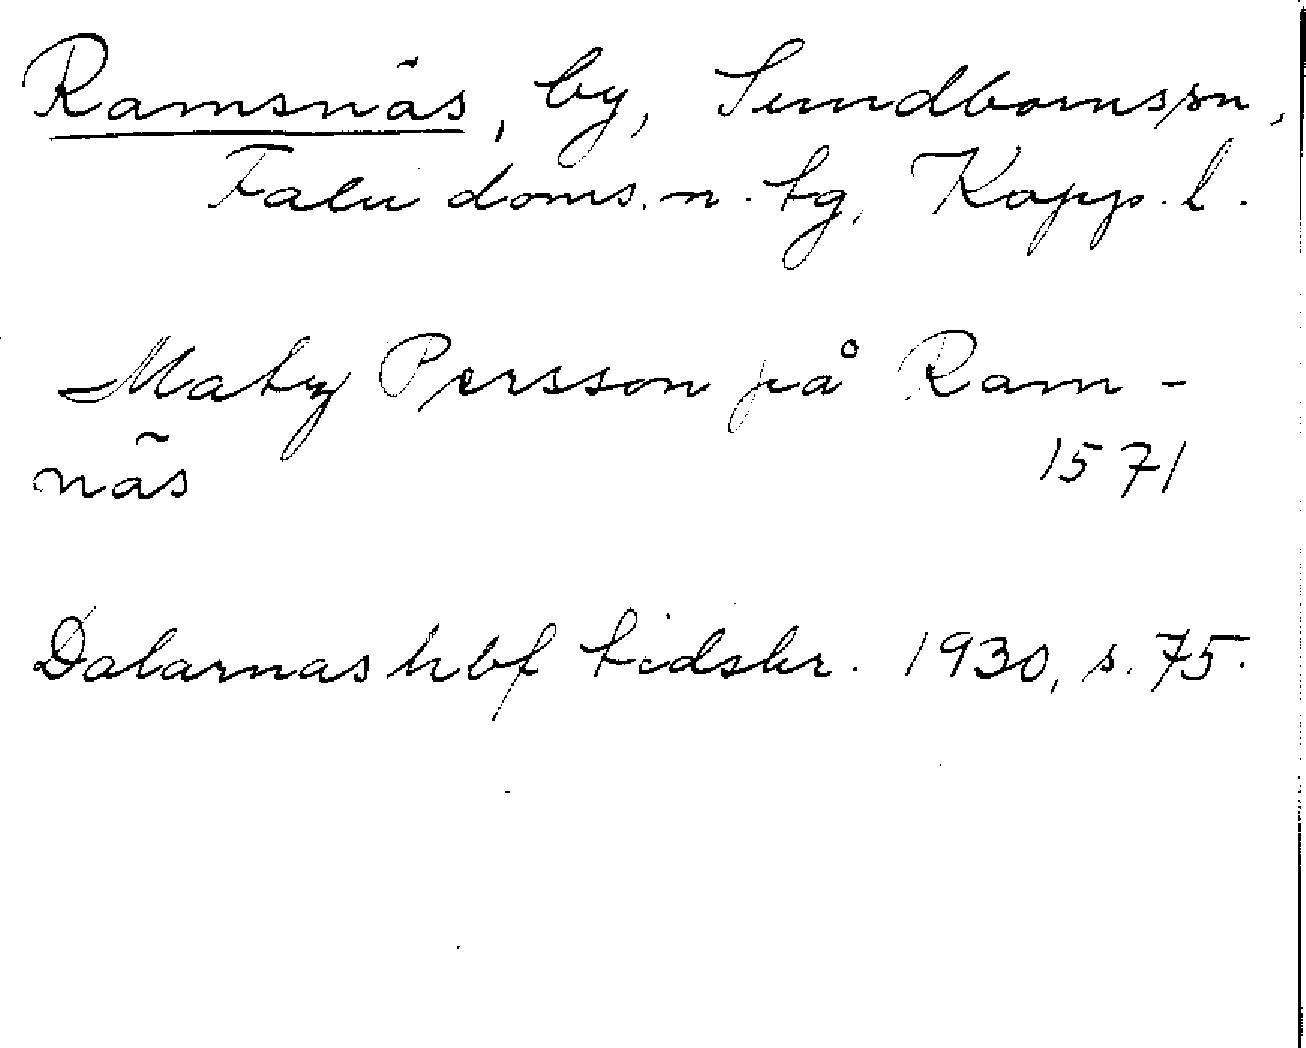 Ramsnäs, by, Sundbornssn,
Falu doms. n. tg, Kopp. l.
Matz Persson på Ram-
näs 1571
Dalarnas hbf tidskr. 1930, s. 75.